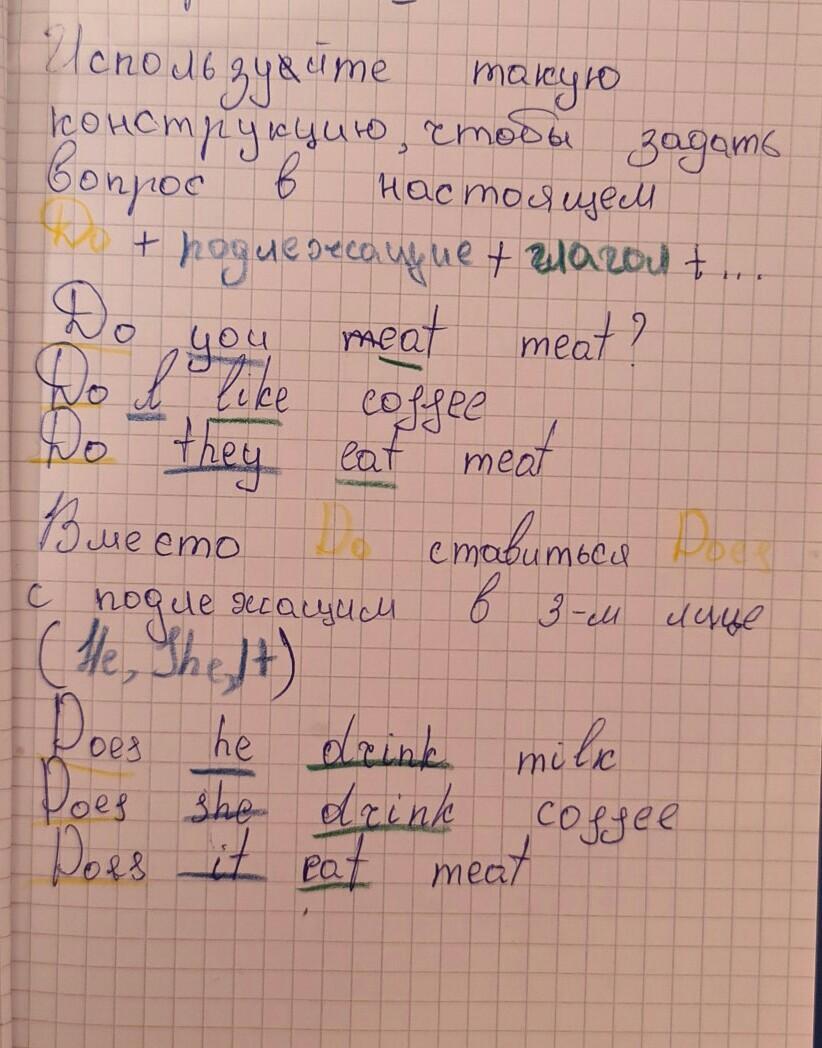 Используйте такую
конструкцию, чтобы задать
вопрос в настоящем
Do + подлежащие + глагол + ...
Do you meat meat?
Do I like coffee
Do they eat meat
Вместо Do ставиться Does
с подлежащим в 3-м лице
(He, She, It)
Does he drink milk
Does she drink coffee
Does it eat meat